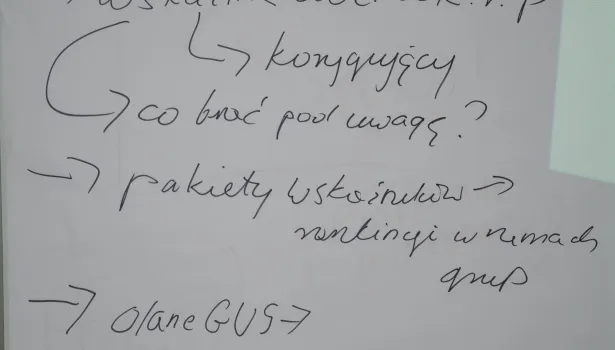 korygujący
co brać pod uwagę?
→ pakiety wskaźników →
rankingi w ramach
grup
→ dane GUS →